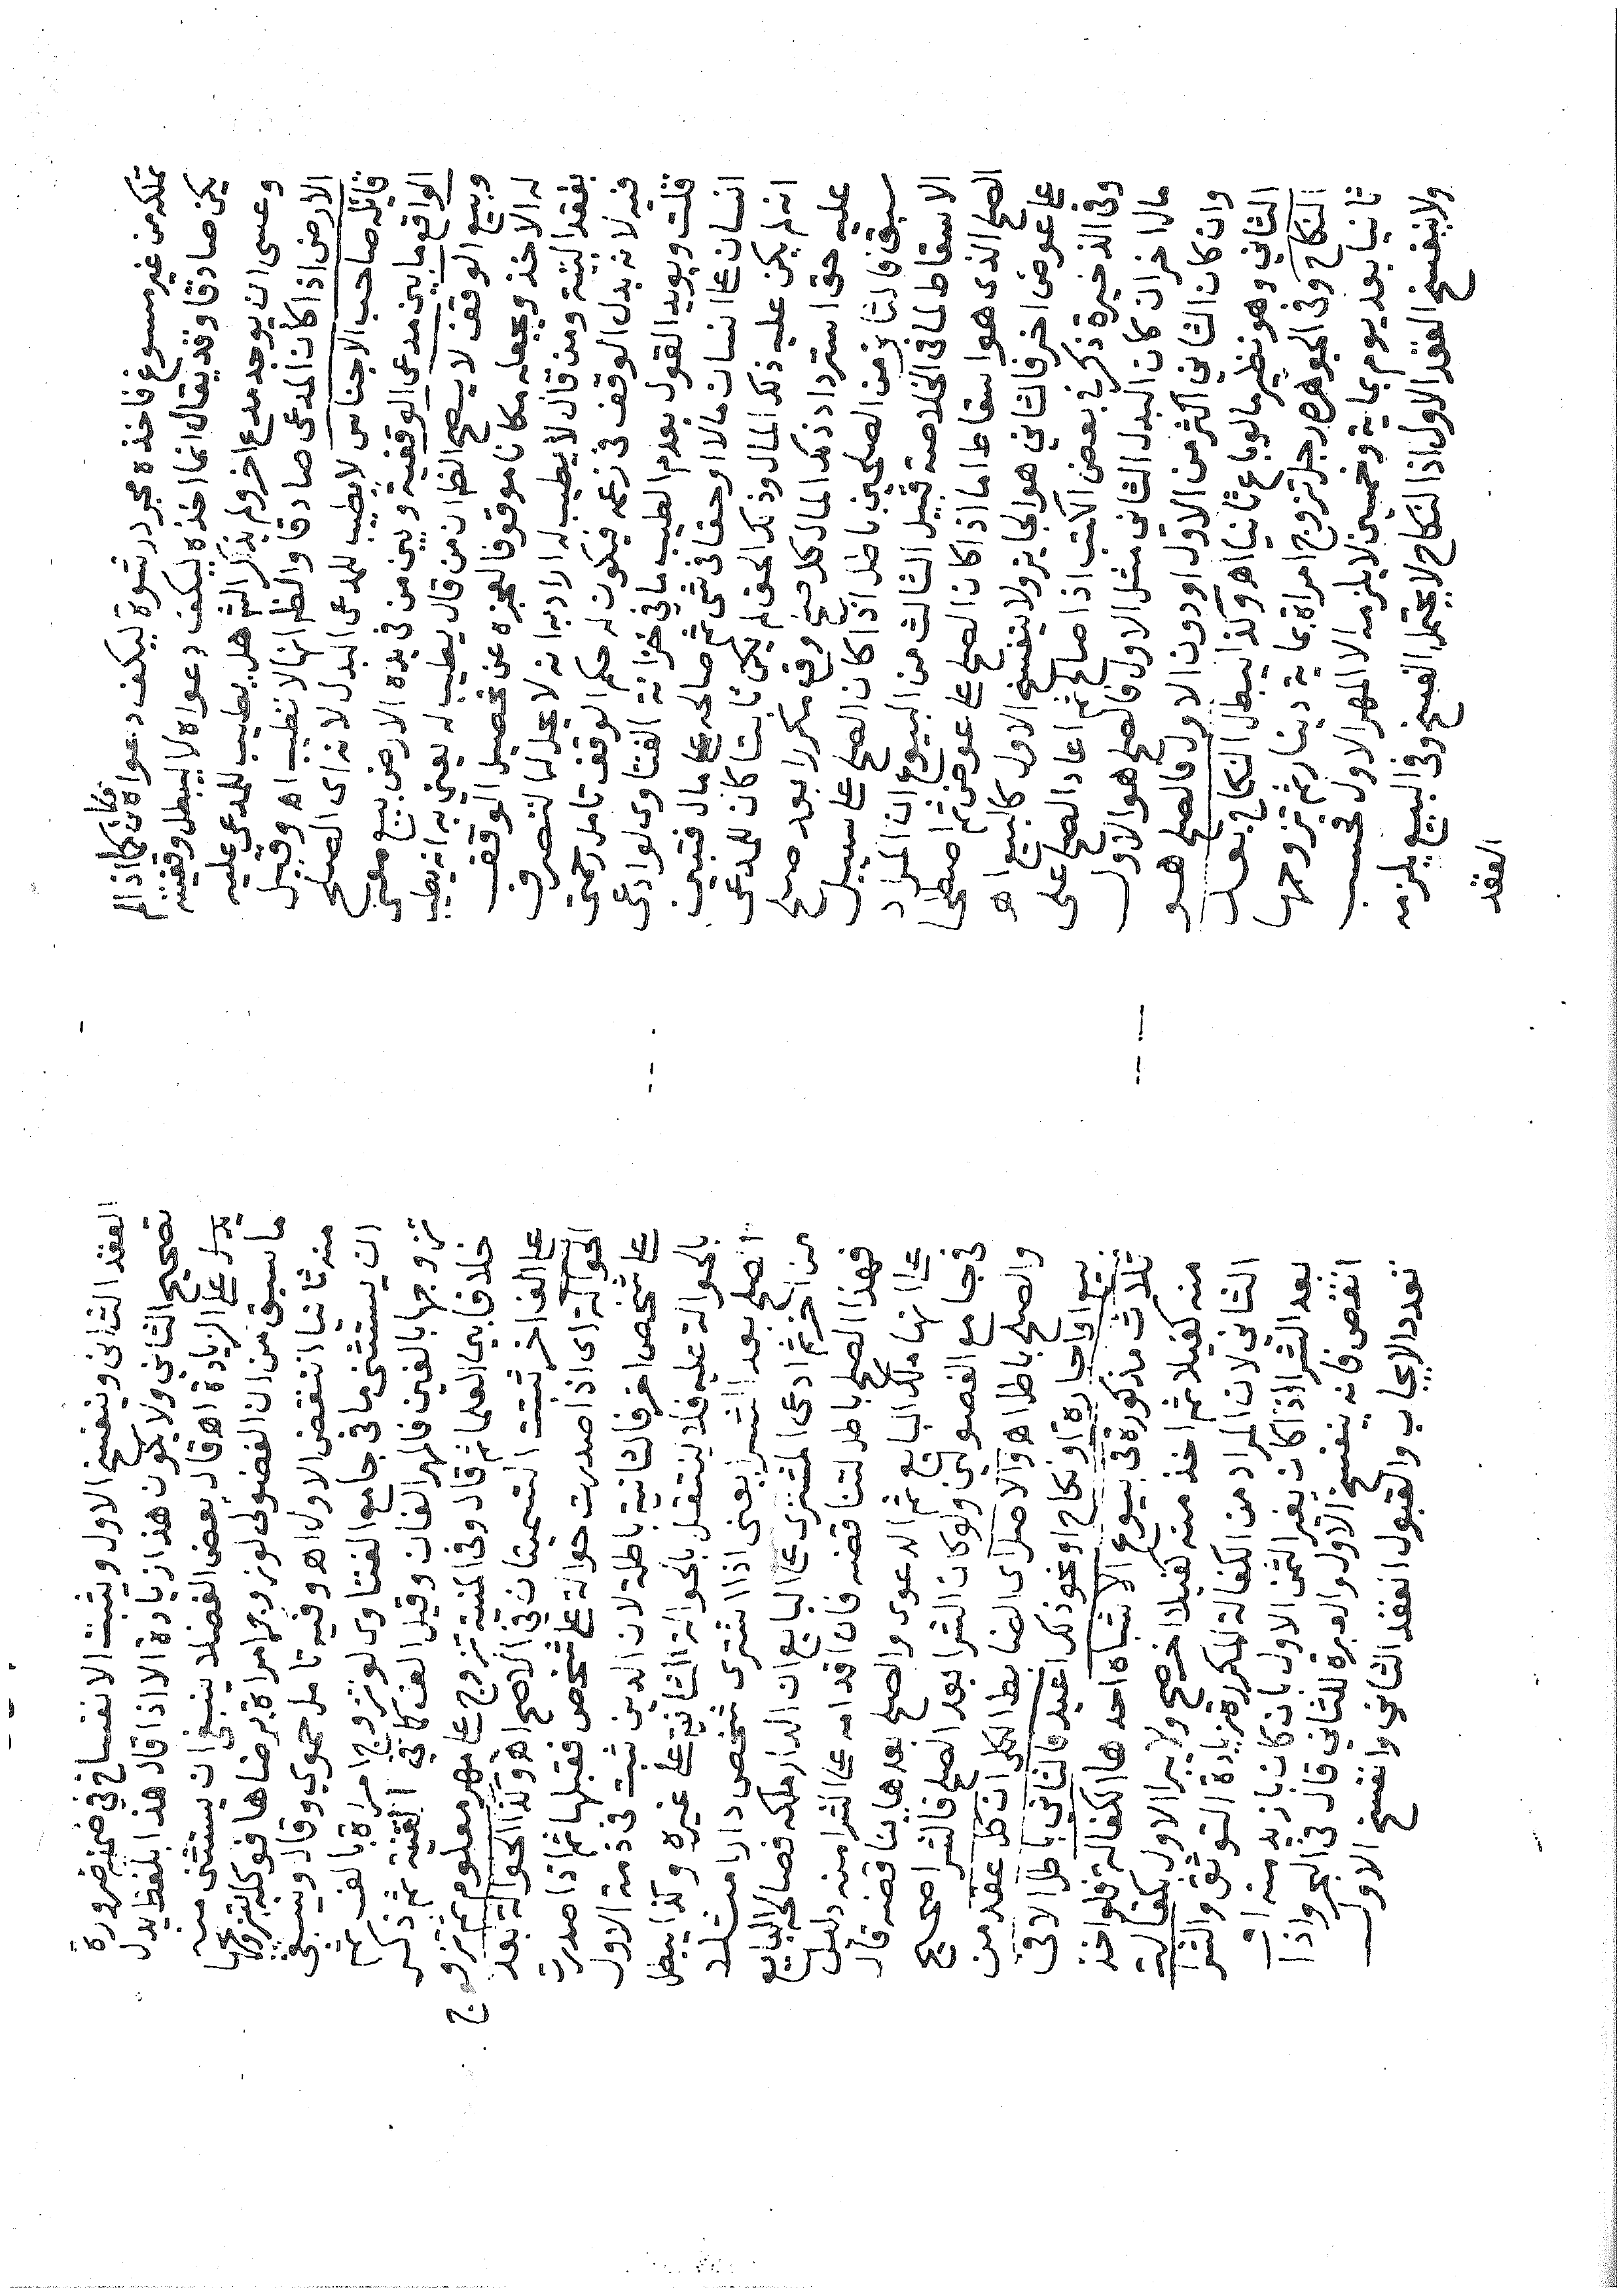 تملكه من غير مسوغ فاخذه مجرد رشوة ليكف دعواه فكان كما اذا لم
يكن صادقا وقد يقال انما اخذه ليكف دعواه لا ليبطل وقفيته
وعسى ان يوجد مدع اخر ولم يذكر اثم هل يطيب للمدعى عليه
الارض اذا كان المدعى صادقا والظ انها لا تطيب اه وقيل
قائله صاحب الاجناس لا يطيب للمدعى البدل لانه اى الصلح
الواقع ما بين مدعى الوقفية وبين من في يده الارض بيع معنى
وبيع الوقف لا يصح الظ ان من قال يطيب له يعنى به انه يطيب
له الاخذ ويجعله مكانا موقوفا لعجزه عن تحصيل الوقف
بفقد البينة ومن قال لا يطيب له اراد به انه لا يحل لها لتصرف
فيه لانه بدل الوقف فى زعمه فيكون له حكم الوقف تامل رحمتى
قلت ويويد القول بعدم الطيب ما في خزانة الفتاوى لو ادعى
انسان على انسان مالا او حقا فى شى ثم صالحه على مال فتبين
انه لم يكن عليه ذلك المال وذلك الحق لم يكن ثابتا كان للمدعى
عليه حق استرداد ذلك المال كل صلح وقع مكررا بعد صلح
سبق فالثاني من الصلحين باطل اذا كان الصلح على سبيل
الاسقاط لما فى الخلاصة قبيل الثالث من البيوع ان المراد
الصلح الذى هو اسقاط اما اذا كان الصلح على عوض ثم اصطلحا
على عوض اخر فالثاني هو الجايز ولا ينفسخ الاول كالبيع اه
وفى الذخيرة ذكر فى بعض الكتب اذا صالح ثم اعاد الصلح على
مال اخر ان كان البدل الثانى مثل الاول فالصلح هو الاول
وان كان الثاني اكثر من الاول او دون الاول فالصلح هو
الثاني وهو نظير ما لو باع ثانيا اه وكذا يبطل النكاح بعد
النكاح وفى الجوهر رجل تزوج امراة بماية دينار ثم تزوجها
ثانيا بعد يوم بماية وخمسين لا يلزمه الا المهر الاول فحسب
ولا ينفسخ العقد الاول اذ النكاح لا يحتمل الفسخ وفى البيع يلزمه
العقد
العقد الثانى وينفسخ الاول ويثبت الانفساخ في ضمنه ضرورة
تصحيح الثاني ولا يكون هذا زيادة الا اذا قال هذا بلفظ يدل
يدل على الزيادة اه قال بعض الفضلا ينبغى ان يستثنى منه
ما سبق من ان الفضولى لو زوجه امراة برضاها فوكله بتزويجها
منه ثانيا انتقض الاول اه وفيه تامل حموي وقال وينبغى
ان يستثنى ما في جامع الفتاوى لو تزوج امراة بالف ثم
تزوجها بالفين فالمهر الفان وقيل الف كما في القنية ثم ذكر
خلافا بين العلما ثم قال وفى المنية تزوج على مهر معلوم ثم تزوج
على الف اخر ثبتت التسميتان في الاصح اه وكذا الحوالة بعد
الحوالة اى اذا صدرت حوالة على شخص فقبلها ثم اذا صدرت
على شخص اخر فالثانية باطلة لان الدين ثبت فى ذمة الاول
بالحوالة عليه فلا ينتقل بالحوالة الثانية على غيره وكذا يبطل
الصلح بعد الشرا يعنى اذا اشترى شخص دارا مثلا
من اخر ثم ادعى المشترى على البايع ان الدار ملكه فصالحه البايع
فهذا الصلح باطل لتناقضه فان اقدامه على الشرا منه دليل
على انها ملك البايع ثم الدعوى والصلح بعدها يناقضه قال
فى جامع الفصولين ولو كان الشرا بعد الصلح فالشرا صحيح
والصلح باطل اه والاصل اى الضابط الكلى ان كل عقد من
بيع او اجارة او نكاح او نحو ذلك اعيد فالثاني باطل الا فى
ثلاث مذكورة فى بيوع الاشباه احدها الكفالة فلو اخذ
منه كفيلا ثم اخذ منه كفيلا اخر صح ولا يبرا الاول بكفالة
الثانى لان المراد من الكفالة المكررة زيادة التوثق والشرا
بعد الشرا اذا كان بغير الثمن الاول بان كان بازيد منه او
انقص فانه ينفسخ الاول والعبرة للثاني قال فى البحر واذا
تعدد الايجاب والقبول انعقد الثاني وانفسخ الاول